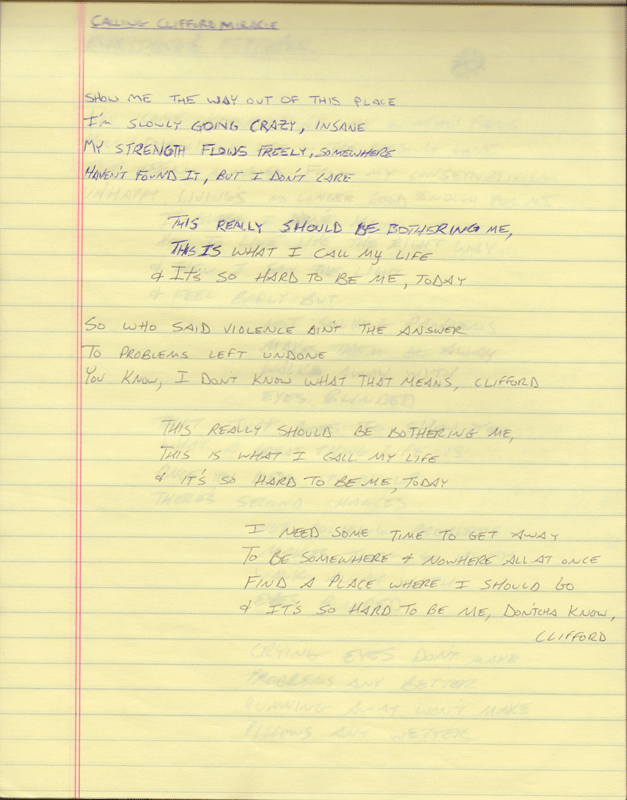 CALLING CLIFFORD MIRACLE
SHOW ME THE WAY OUT OF THIS PLACE
I'M SLOWLY GOING CRAZY, INSANE
MY STRENGTH FLOWS FREELY, SOMEWHERE
HAVEN'T FOUND IT, BUT I DON'T CARE
THIS REALLY SHOULD BE BOTHERING ME,
THIS IS WHAT I CALL MY LIFE
& IT'S SO HARD TO BE ME, TODAY
SO WHO SAID VIOLENCE AINT THE ANSWER
TO PROBLEMS LEFT UNDONE
YOU KNOW, I DONT KNOW WHAT THAT MEANS, CLIFFORD
THIS REALLY SHOULD BE BOTHERING ME,
THIS IS WHAT I CALL MY LIFE
& IT'S SO HARD TO BE ME, TODAY
I NEED SOME TIME TO GET AWAY
TO BE SOMEWHERE & NOWHERE ALL AT ONCE
FIND A PLACE WHERE I SHOULD GO
& IT'S SO HARD TO BE ME, DON'TCHA KNOW,
CLIFFORD
CRYING EYES DONT MAKE
PROBLEMS ANY BETTER
RUNNING AWAY WON'T MAKE
PILLOWS ANY WETTER